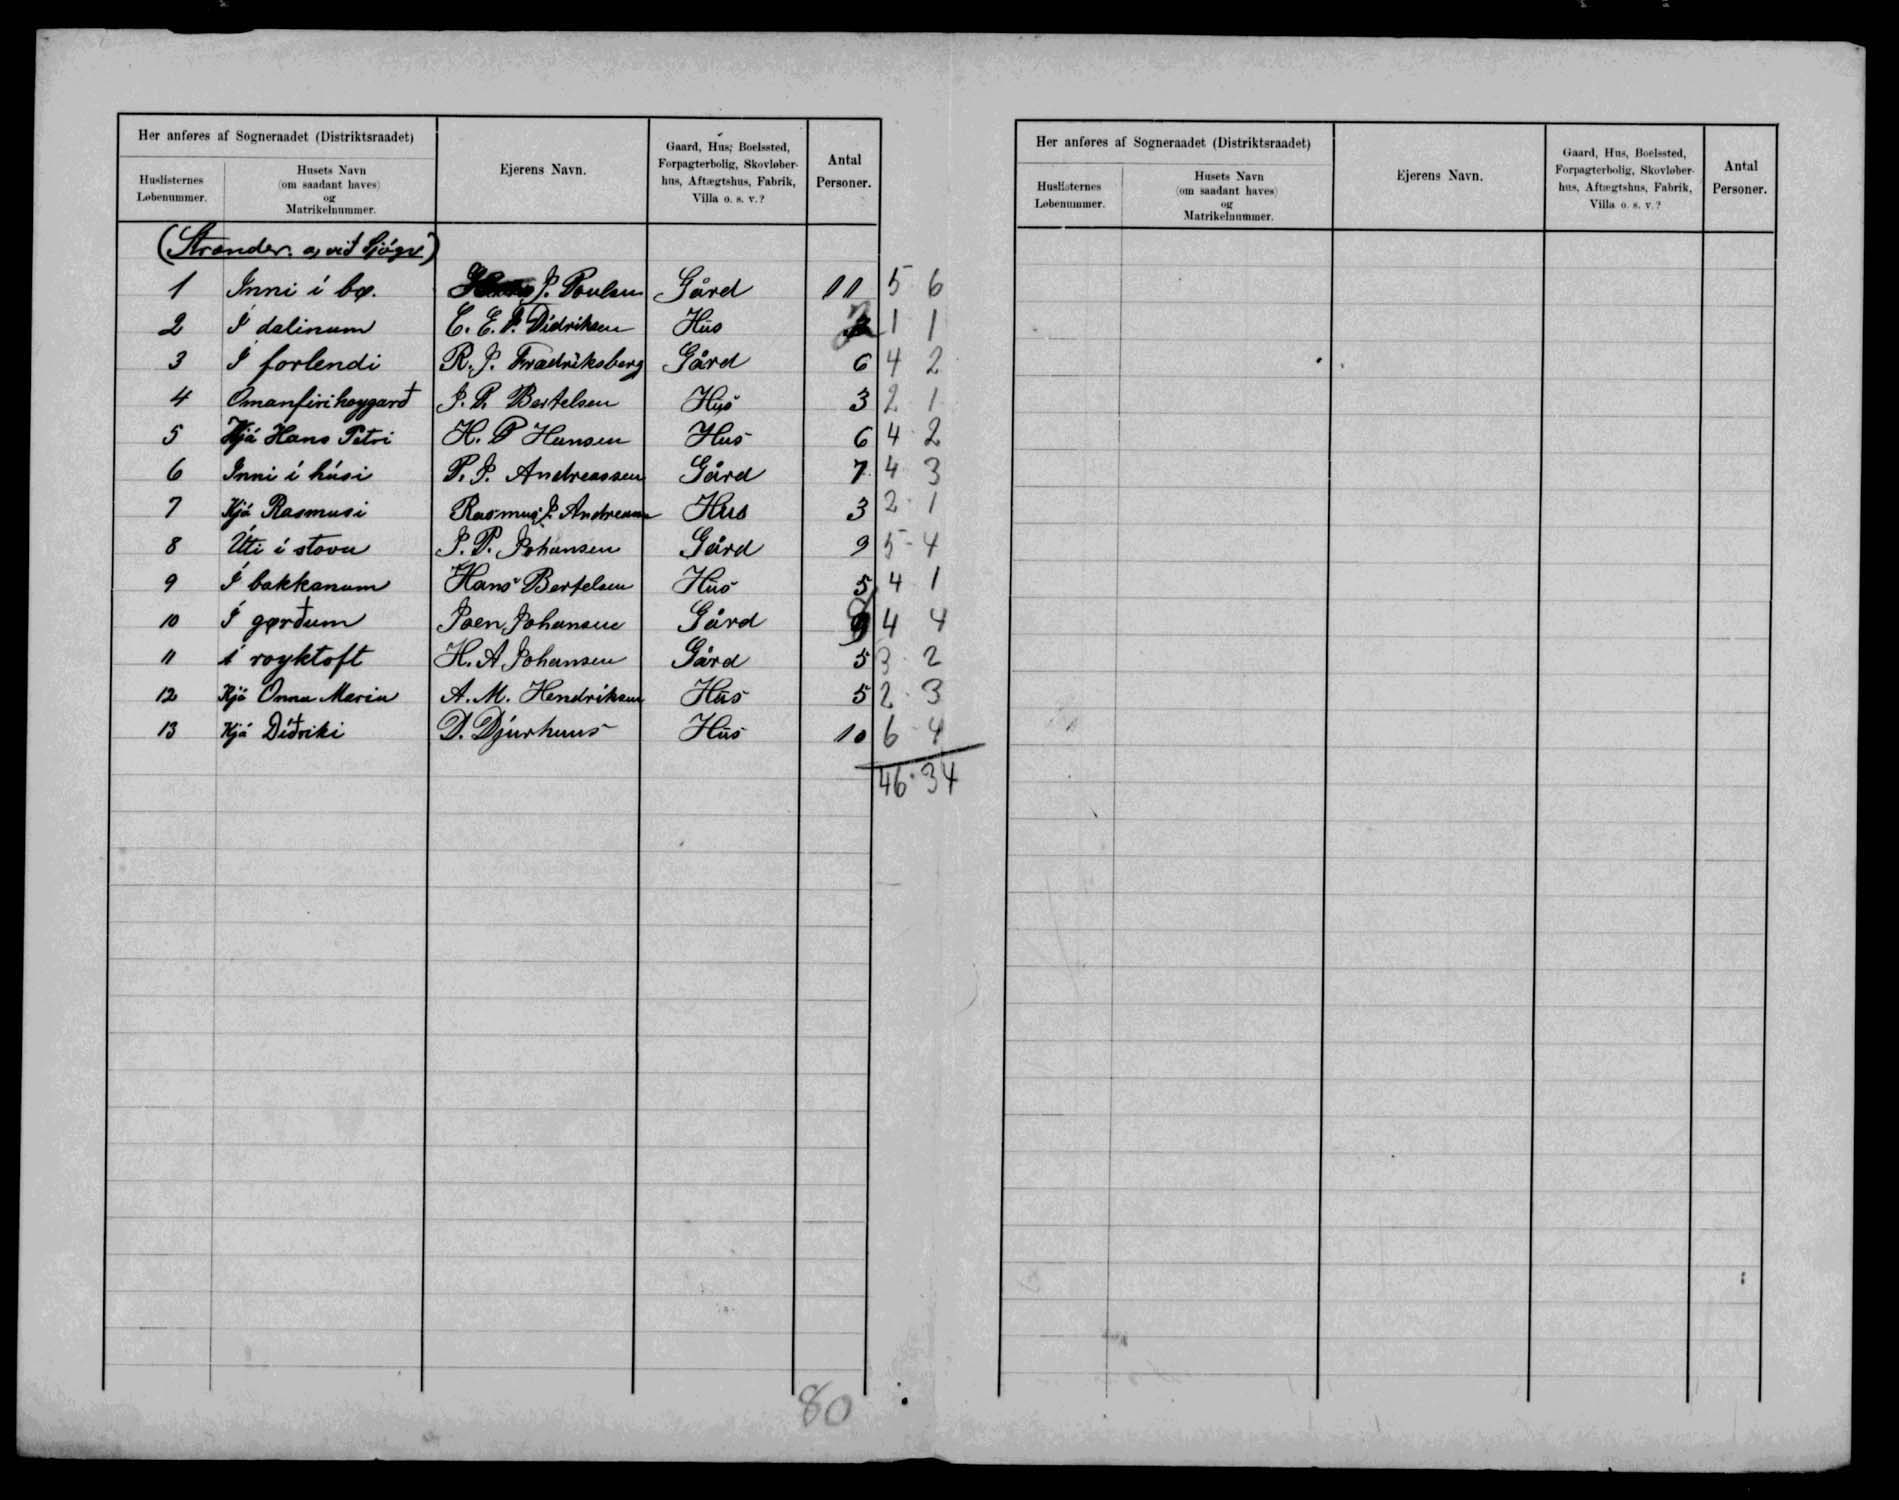 Her anføres af Sogneraadet (Distriktsraadet)
Huslisternes Løbenummer.
Husets Navn (om saadant haves) og Matrikelnummer.
Ejerens Navn.
Gaard, Hus, Boelssted, Forpagterbolig, Skovløberhus, Aftægtshus, Fabrik, Villa o. s. v.?
Antal Personer.
(Strender. a, við Sjógv)
1 Inni í bø. J. Poulsen Gård 11 5 6
2 Í dalinum C. E. F. Didriksen Hús 2 1 1
3 Í forlendi R. J. Fradriksberg Gård 6 4 2
4 Omanfiri hoygarð J. P. Bertelsen Hus 3 2 1
5 Hjá Hans Petri H. P Hansen Hus 6 4 2
6 Inni í húsi P. J. Andreassen Gård 7 4 3
7 Hjá Rasmusi Rasmus J. Andreasen Hus 3 2 1
8 Úti í stovu J. P. Johansen Gård 9 5 - 4
9 Í bakkanum Hans Bertelsen Hus 5 4 1
10 Í gørðum Joen Johansen Gård 8 4 4
11 í royktoft H. A Johansen Gård 5 3 2
12 Hjá Onnu Mariu A. M. Hendriksen Hus 5 2 3
13 Hjá Diðriki D. Djurhuus Hus 10 6 4
46 . 34
80
Her anføres af Sogneraadet (Distriktsraadet)
Huslisternes Løbenummer.
Husets Navn (om saadant haves) og Matrikelnummer.
Ejerens Navn.
Gaard, Hus, Boelssted, Forpagterbolig, Skovløberhus, Aftægtshus, Fabrik, Villa o. s. v.?
Antal Personer.